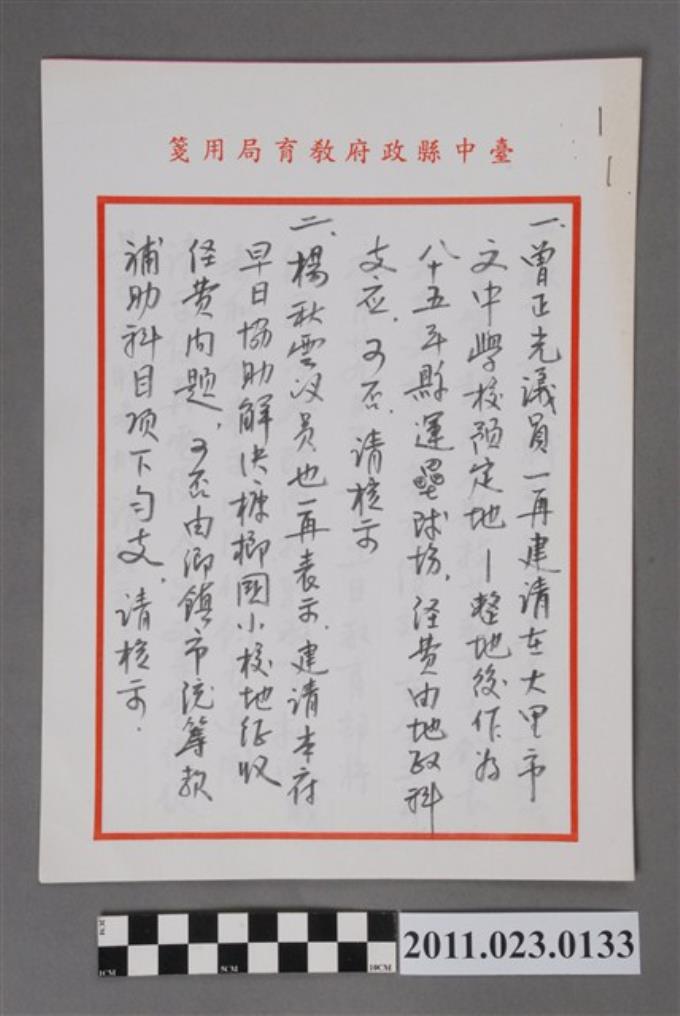 臺中縣政府教育局用箋
一、曾正光議員一再建請在大里市
文中學校預定地－整地後作為
八十五年縣運壘球场，经費由地政科
支应，可否，请核示
二、楊秋雲议员也一再表示，建请本府
早日協助解决槺榔國小校地征收
经費问题，可否由鄉鎮市统籌款
補助科目项下勻支，请核示．
1CM
5CM
10CM
2011.023.0133